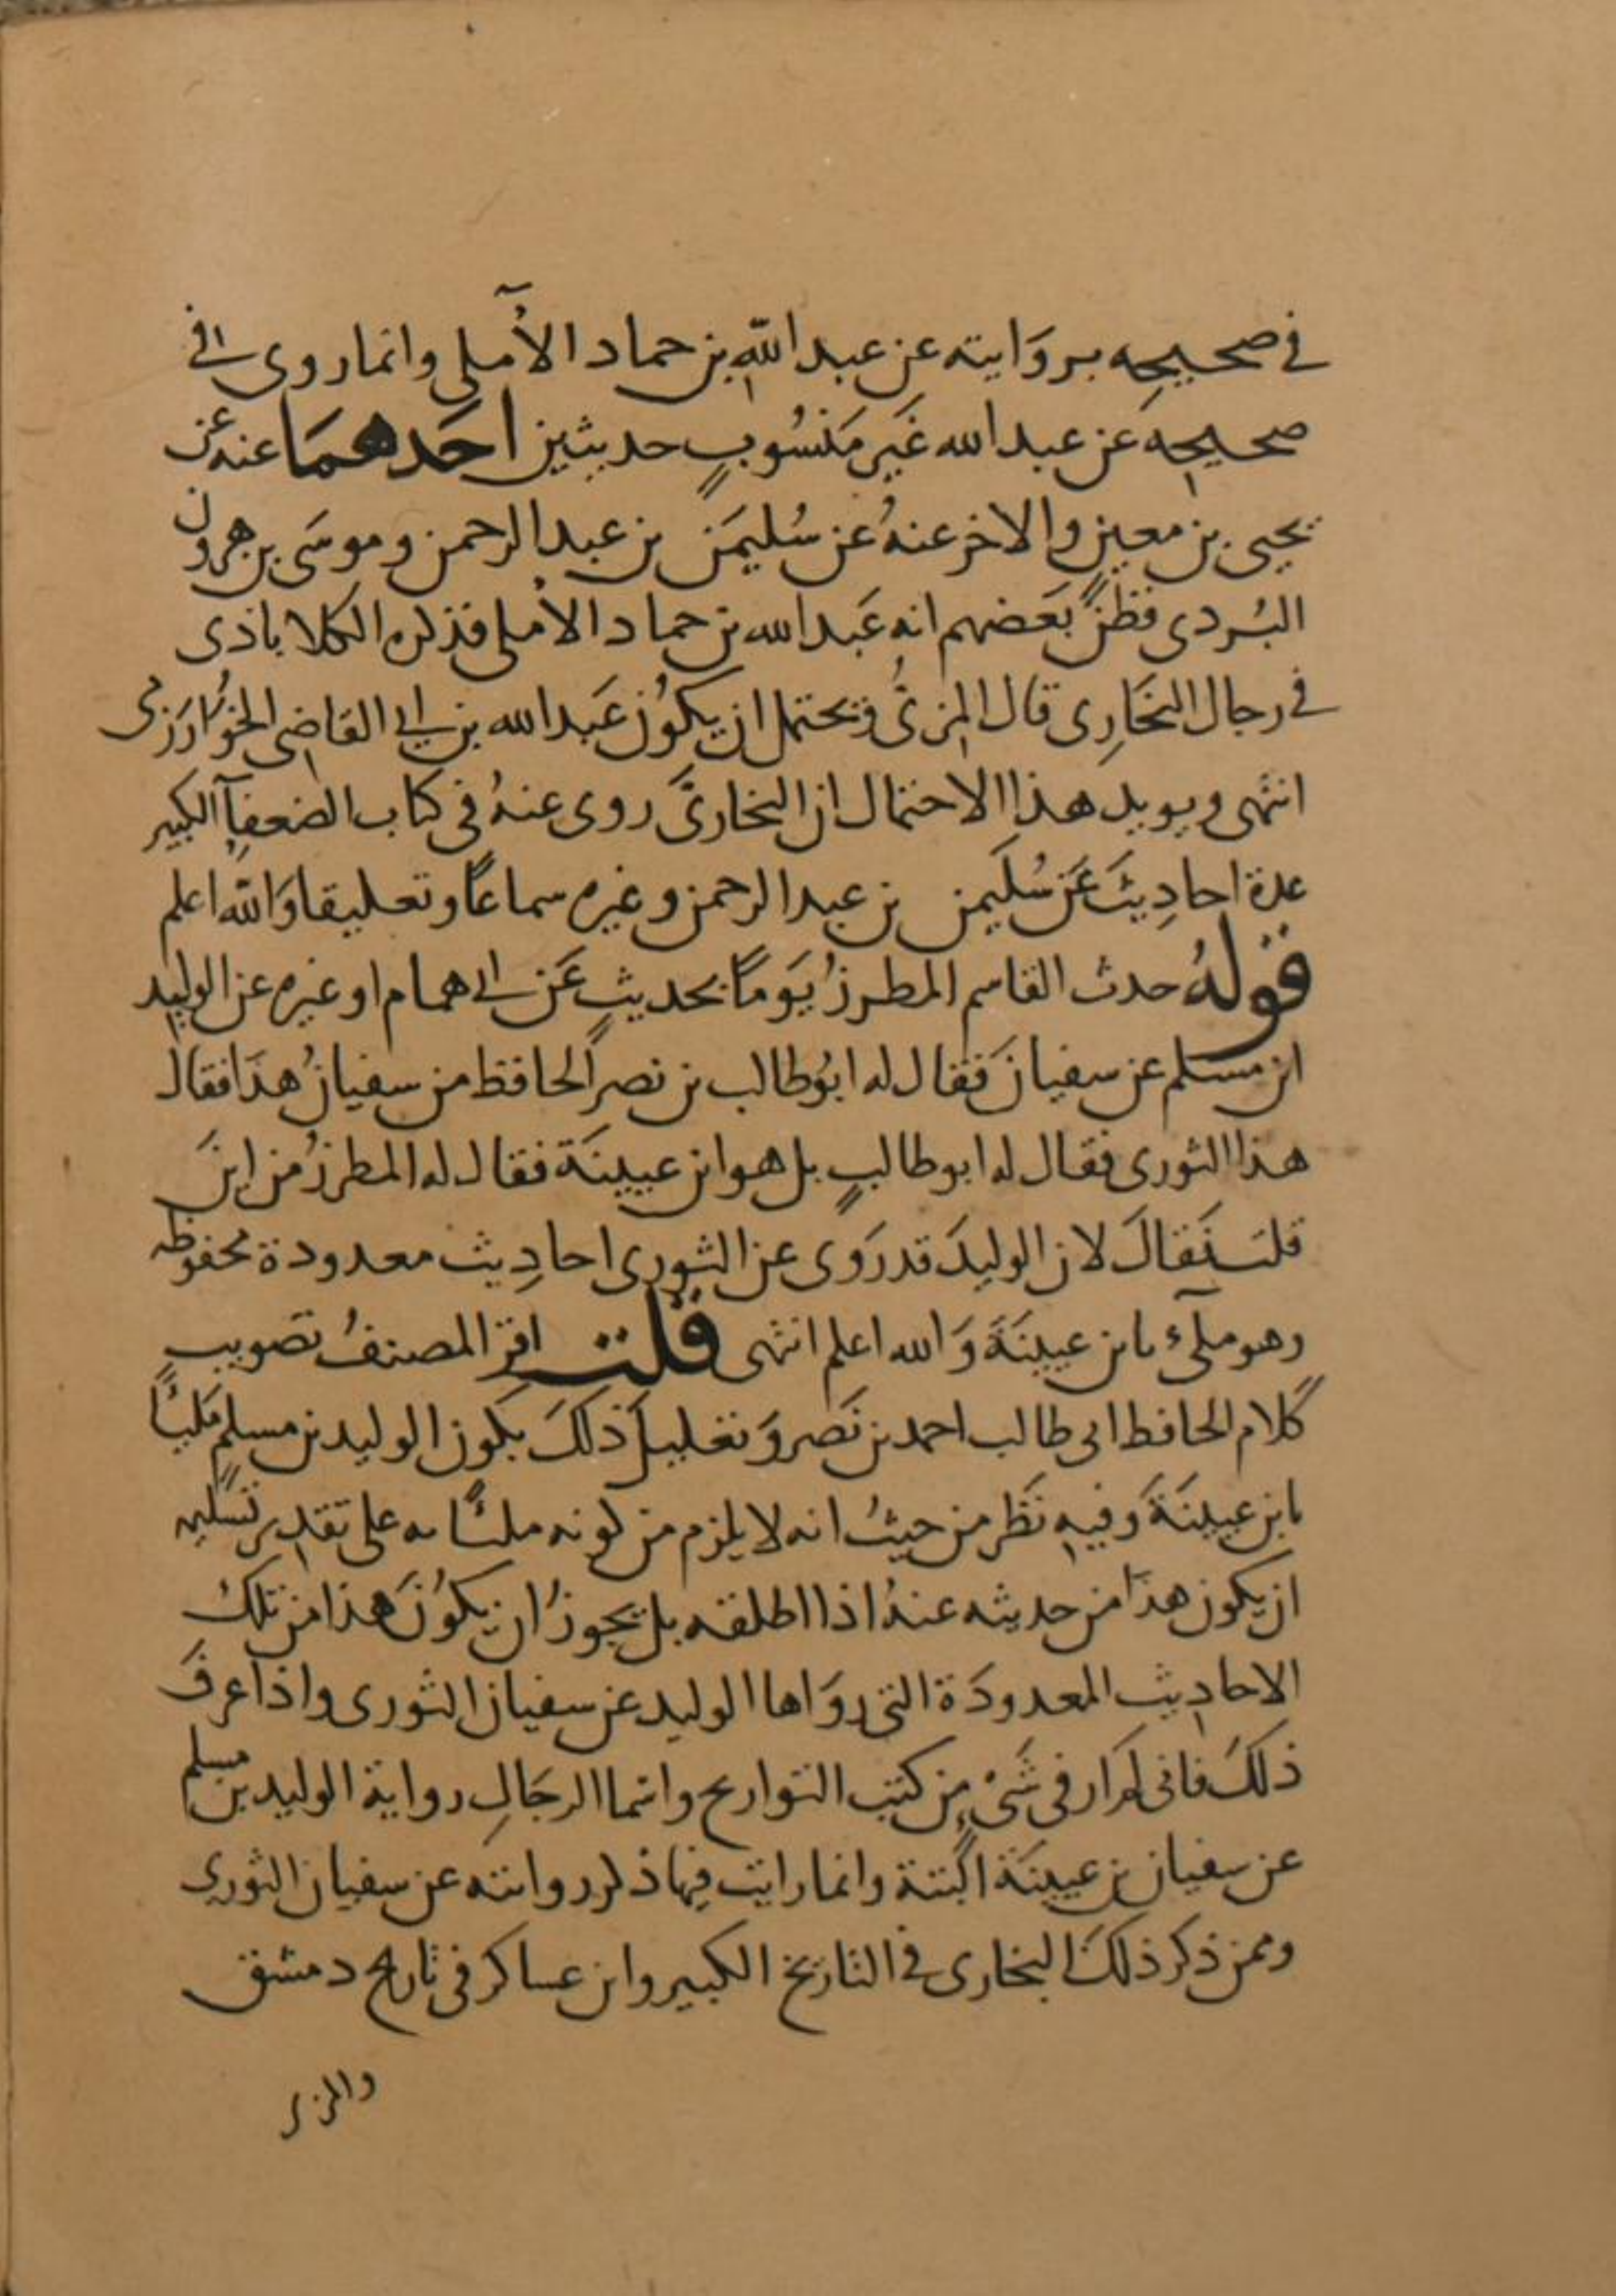 في صحيحه بروَايته عن عبد اللّه بن حماد الآملى وانما روى في
صحيحه عن عبد الله غَير مَنسُوبٍ حديثين احَدهمَا عنه عن
يحيى بن معين والاخر عنهُ عن سُليمَن بن عبد الرحمن وموسَى بن هرون
البُردى فظنَّ بعَضهم انه عَبد الله بن حماد الاملى فذكره الكلاباذى
في رجال البخَارِى قال المزىُّ ويحتمل ان يكوُن عَبد الله بن ابي القاضى الخوُارَزمى
انتهى ويويد هذا الاحتمال ان البخارىَّ روى عنهُ في كتاب الضعفآ الكبير
عدة احادِيثَ عَن سُليمن بن عبد الرحمن وغيره سماعًا وتعليقا وَاللّه اعلم
قولهُ حدث القاسم المطرزُ يَومًا بحديثٍ عَن ابي همام او غيره عن الوليد
ابن مسلم عن سفيانَ فقال له ابوُطالب بن نصر الحافظ من سفيانُ هذَا فقال
هذا الثورى فقال له ابو طالبٍ بل هو ابن عيينَة فقال له المطرزُ من اينَ
قلتَ فَقالَ لان الوليدَ قد رَوى عن الثورى احادِيث معدودة محفوظه
وهو ملىٓء بابن عيينَةَ وَالله اعلم انتهى قلت اقرَّ المصنفُ تصويب
كلام الحافظ ابى طالب احمد بن نَصر وَتعليلَ ذلكَ بكون الوليد بن مسلمٍ مَليئًا
بابن عيينَةَ وَفيه نَظر من حيثُ انه لا يلزم من كونه مليئًا به على تقدير تسليمه
ان يكون هذَا من حديثه عنهُ اذا اطلقه بل يجوزُ ان يكوُنَ هذا من تلكَ
الاحاديث المعدودَة التي روَاها الوليد عن سفيان الثورى واذا عرفَ
ذلكَ فانى لم ار في شَىْءٍ من كتب التواريح واسَما الرجَالِ رواية الوليد بن مسلم
عن سفيان بن عيينَة البتة وانما رايت فيها ذكر روايته عن سفيان الثورى
وممن ذكر ذلكَ البخارى في التاريخ الكبير وابن عساكر في تاريخ دمشق
والمزى